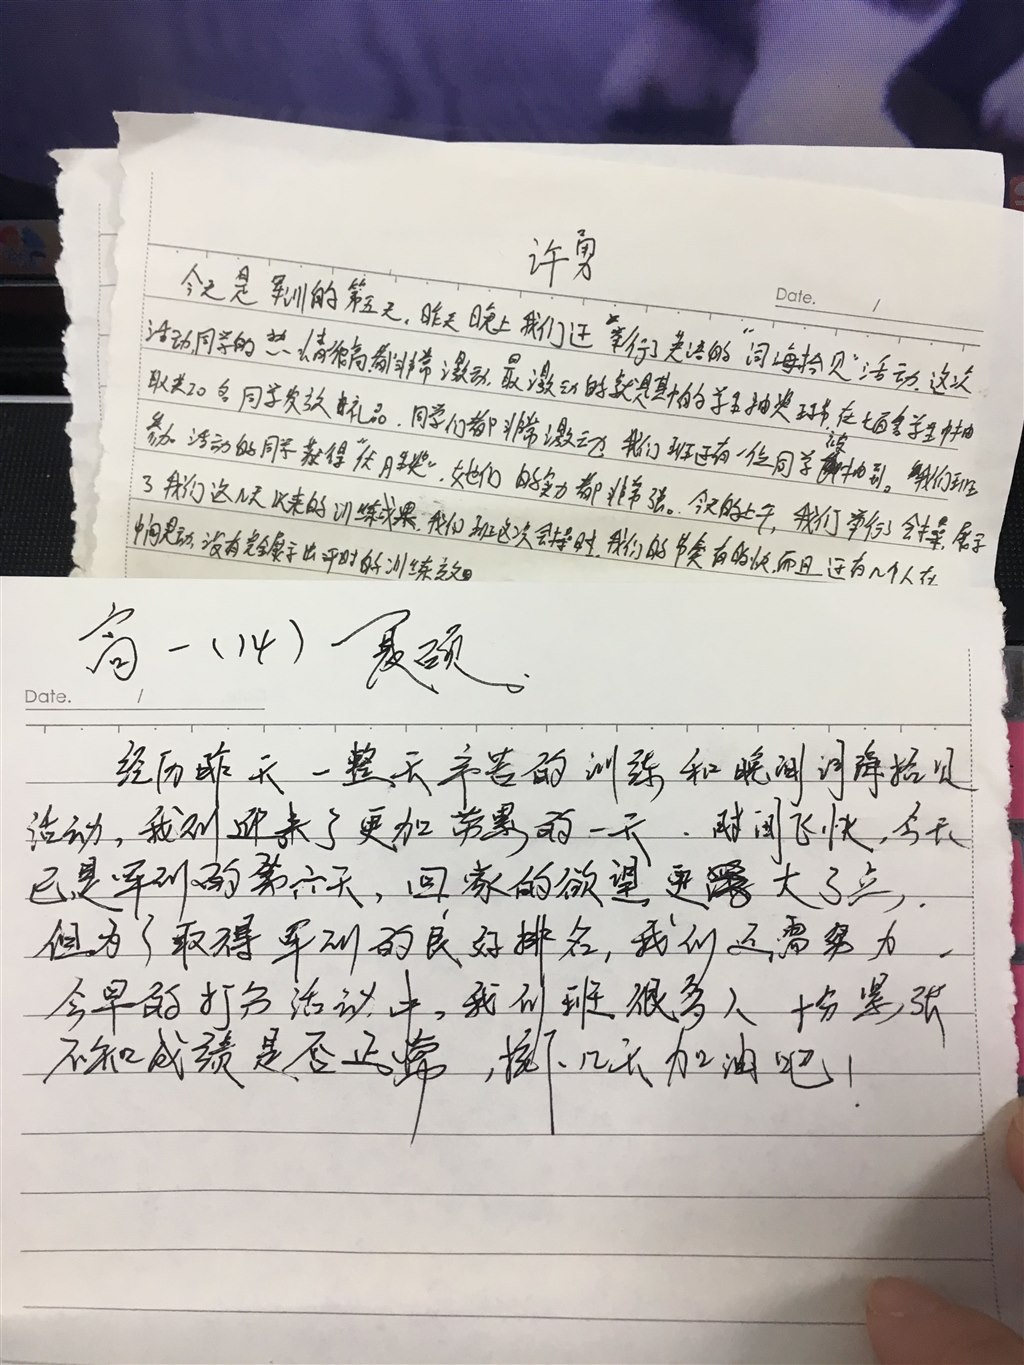 许勇
Date. /
今天是军训的第五天,昨天晚上我们还举行了英语的“词海拾贝”活动,这次
活动,同学的热情很高,都非常激动,最激动的就是其中的学生抽奖环节,在七百名学生中抽
取共20名同学发放礼品,同学们都非常激动,我们班还有一位同学被抽到。我们班
参加活动的同学获得“优胜奖”,她们的实力都非常强。今天的上午,我们举行了会操,展示
了我们这几天以来的训练成果,我们班这次会操时,我们的节奏有的快,而且还有几个人在
中间晃动,没有完全展示出平时的训练效果
高一(14) 夏硕。
Date. /
经历昨天一整天辛苦的训练和晚间词海拾贝
活动,我们迎来了更加劳累的一天.时间飞快,今天
已是军训的第六天,回家的欲望更大了些,
但为了取得军训的良好排名,我们还需努力,
今早的打分活动中,我们班很多人十分紧张
不知成绩是否正常,接下几天加油吧!